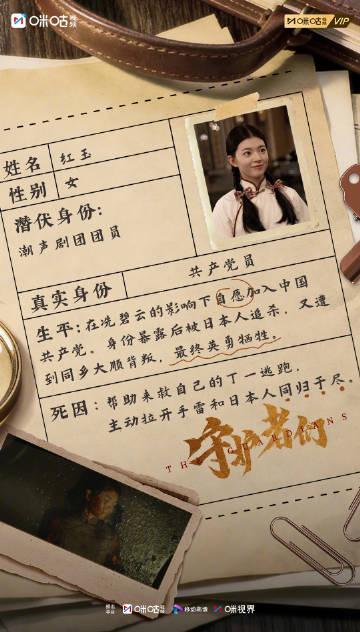 咪咕视频
咪咕视频 VIP
姓名 红玉
性别 女
潜伏身份:
潮声剧团团员
真实身份 共产党员
生平:在冼碧云的影响下自愿加入中国
共产党。身份暴露后被日本人追杀，又遭
到同乡大顺背叛，最终英勇牺牲。
死因：帮助来救自己的丁一逃跑，
主动拉开手雷和日本人同归于尽。
守护者们
THE GUARDIANS
咪咕视频 移动高清 咪视界